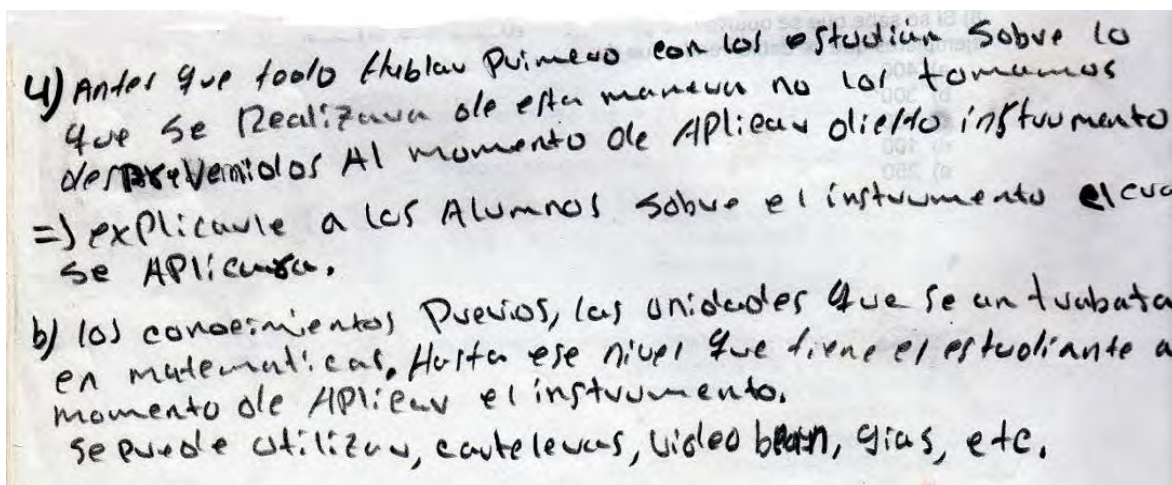 4) Antes que todo Hablar Primero con los estudian Sobre lo
que se Realizara de esta manera no los tomamos
desprevenidos Al momento de APlicar dicHo instrumento
=) exPlicarle a los Alumnos sobre el instrumento el cua
se APlicara.
b) los conocimientos Previos, las unidades que se an trabata
en matematicas, Hasta ese nivel que tiene el estudiante a
momento de APlicar el instrumento.
se puede utilizar, carteleras, video bean, gias, etc.